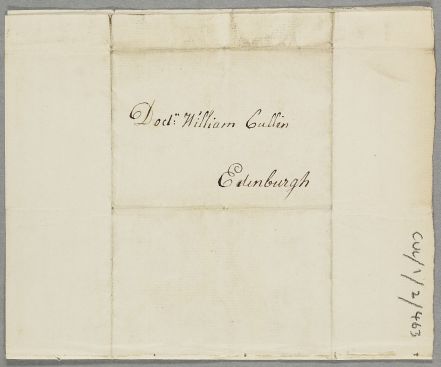 Doctr: William Cullin
Edinburgh
CUL/1/2/463